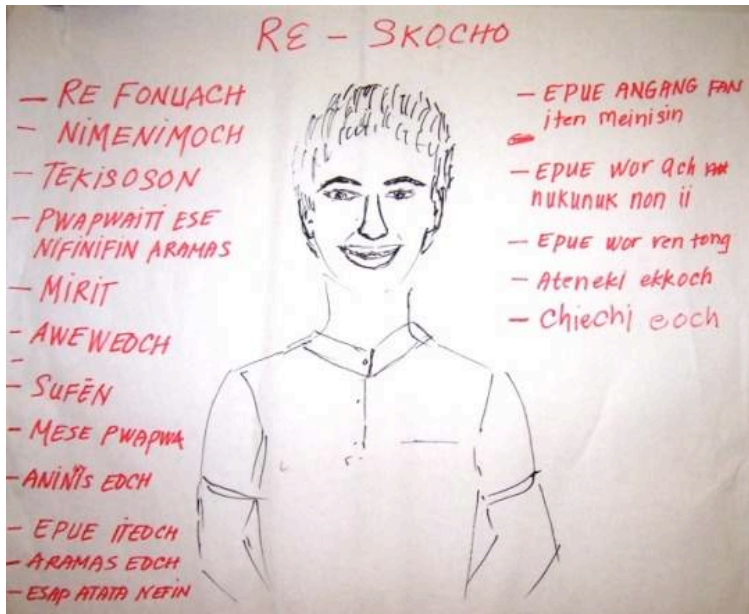 RE - SKOCHO
- RE FONUACH
- NIMENIMOCH
- TEKISOSON
- PWAPWAITI ESE
NIFINIFIN ARAMAS
- MIRIT
- AWEWEOCH
-
- SUFĒN
- MESE PWAPWA
- ANINNIS EOCH
- EPUE ITEOCH
- ARAMAS EOCH
- ESAP ATATA NEFIN
- EPUE ANGANG FAN
iten meinisin
- EPUE wor ach
nukunuk non ii
- EPUE wor ren tong
- Ateneki ekkoch
- Chiechi eoch